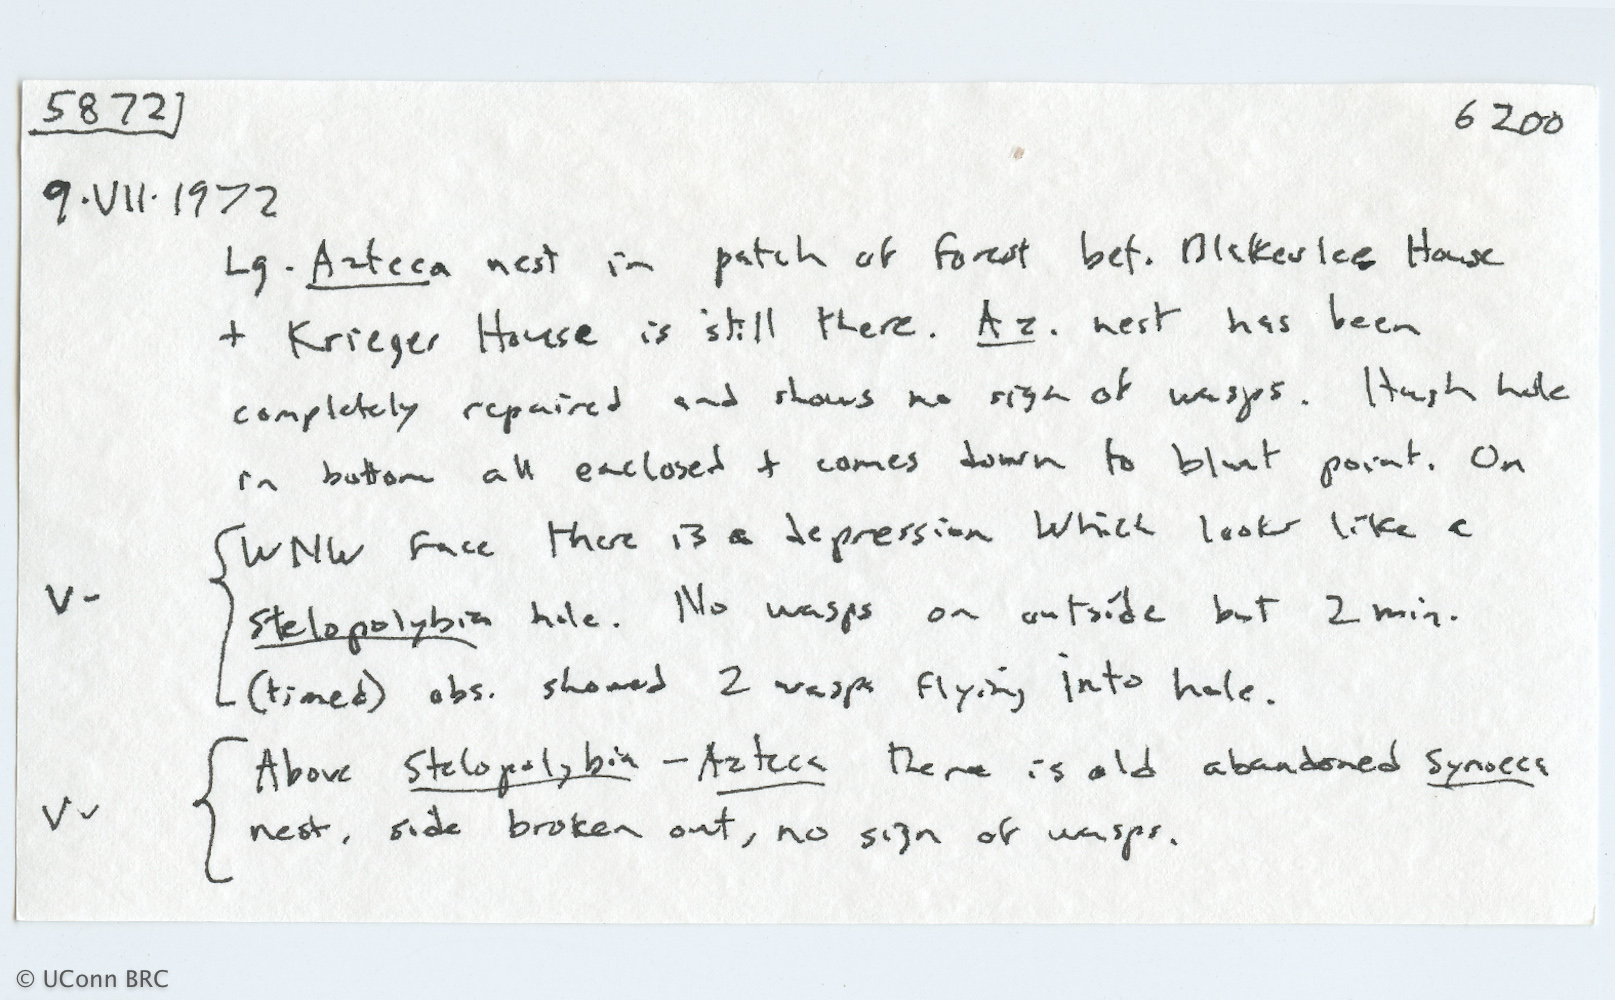 5872] 6200
9.VII.1972
Lg. Azteca nest in patch of forest bet. Blakeslee House
+ Krieger House is still there. Az. nest has been
completely repaired and shows no sign of wasps. hole
in bottom all enclosed + comes down to blunt point. On
WNW face there is a depression which looks like a
V- Stelopolybia hole. No wasps on outside but 2 min.
(timed) obs. showed 2 wasps flying into hole.
Above Stelopolybia - Azteca there is old abandoned Synoeca
nest, side broken out, no sign of wasps.
© UConn BRC